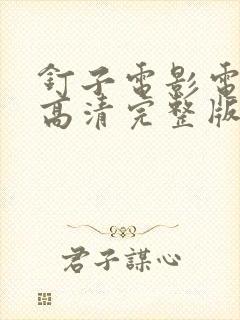 釘子電影電
高清完整版
君子謀心